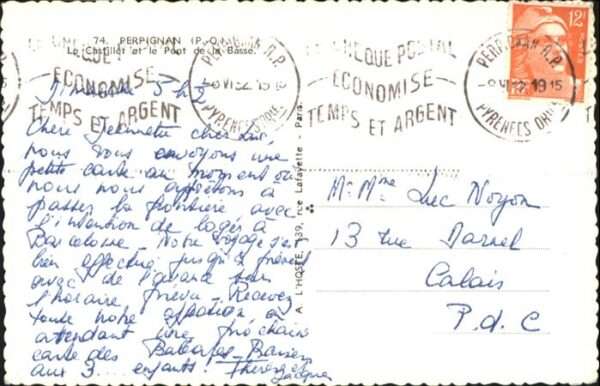 74. PERPIGNAN (P.-O.)
Le Castillet et le Pont de la Basse.
LE CHÈQUE POSTAL
ÉCONOMISE
TEMPS ET ARGENT
PERPIGNAN R.P.
PYRENEES ORIles
12F
Dimanche 5 h 1/2
Chère Jeannette cher Luc,
nous vous envoyons une
petite carte au moment où
nous nous apprêtons à
passer la frontière avec
l'intention de loger à
Barcelone. Notre voyage s'est
bien effectué jusqu'à présent
avec de l'avance sur
l'horaire prévu. Recevez
toute notre affection en
attendant une prochaine
carte des Baléares. Baisers
aux 3... enfants. Thérèse
Jacques
A. L'HOSTE, 139, rue Lafayette - Paris
Mr Mme Luc Noyon
13 rue Darnel
Calais
P. d. C